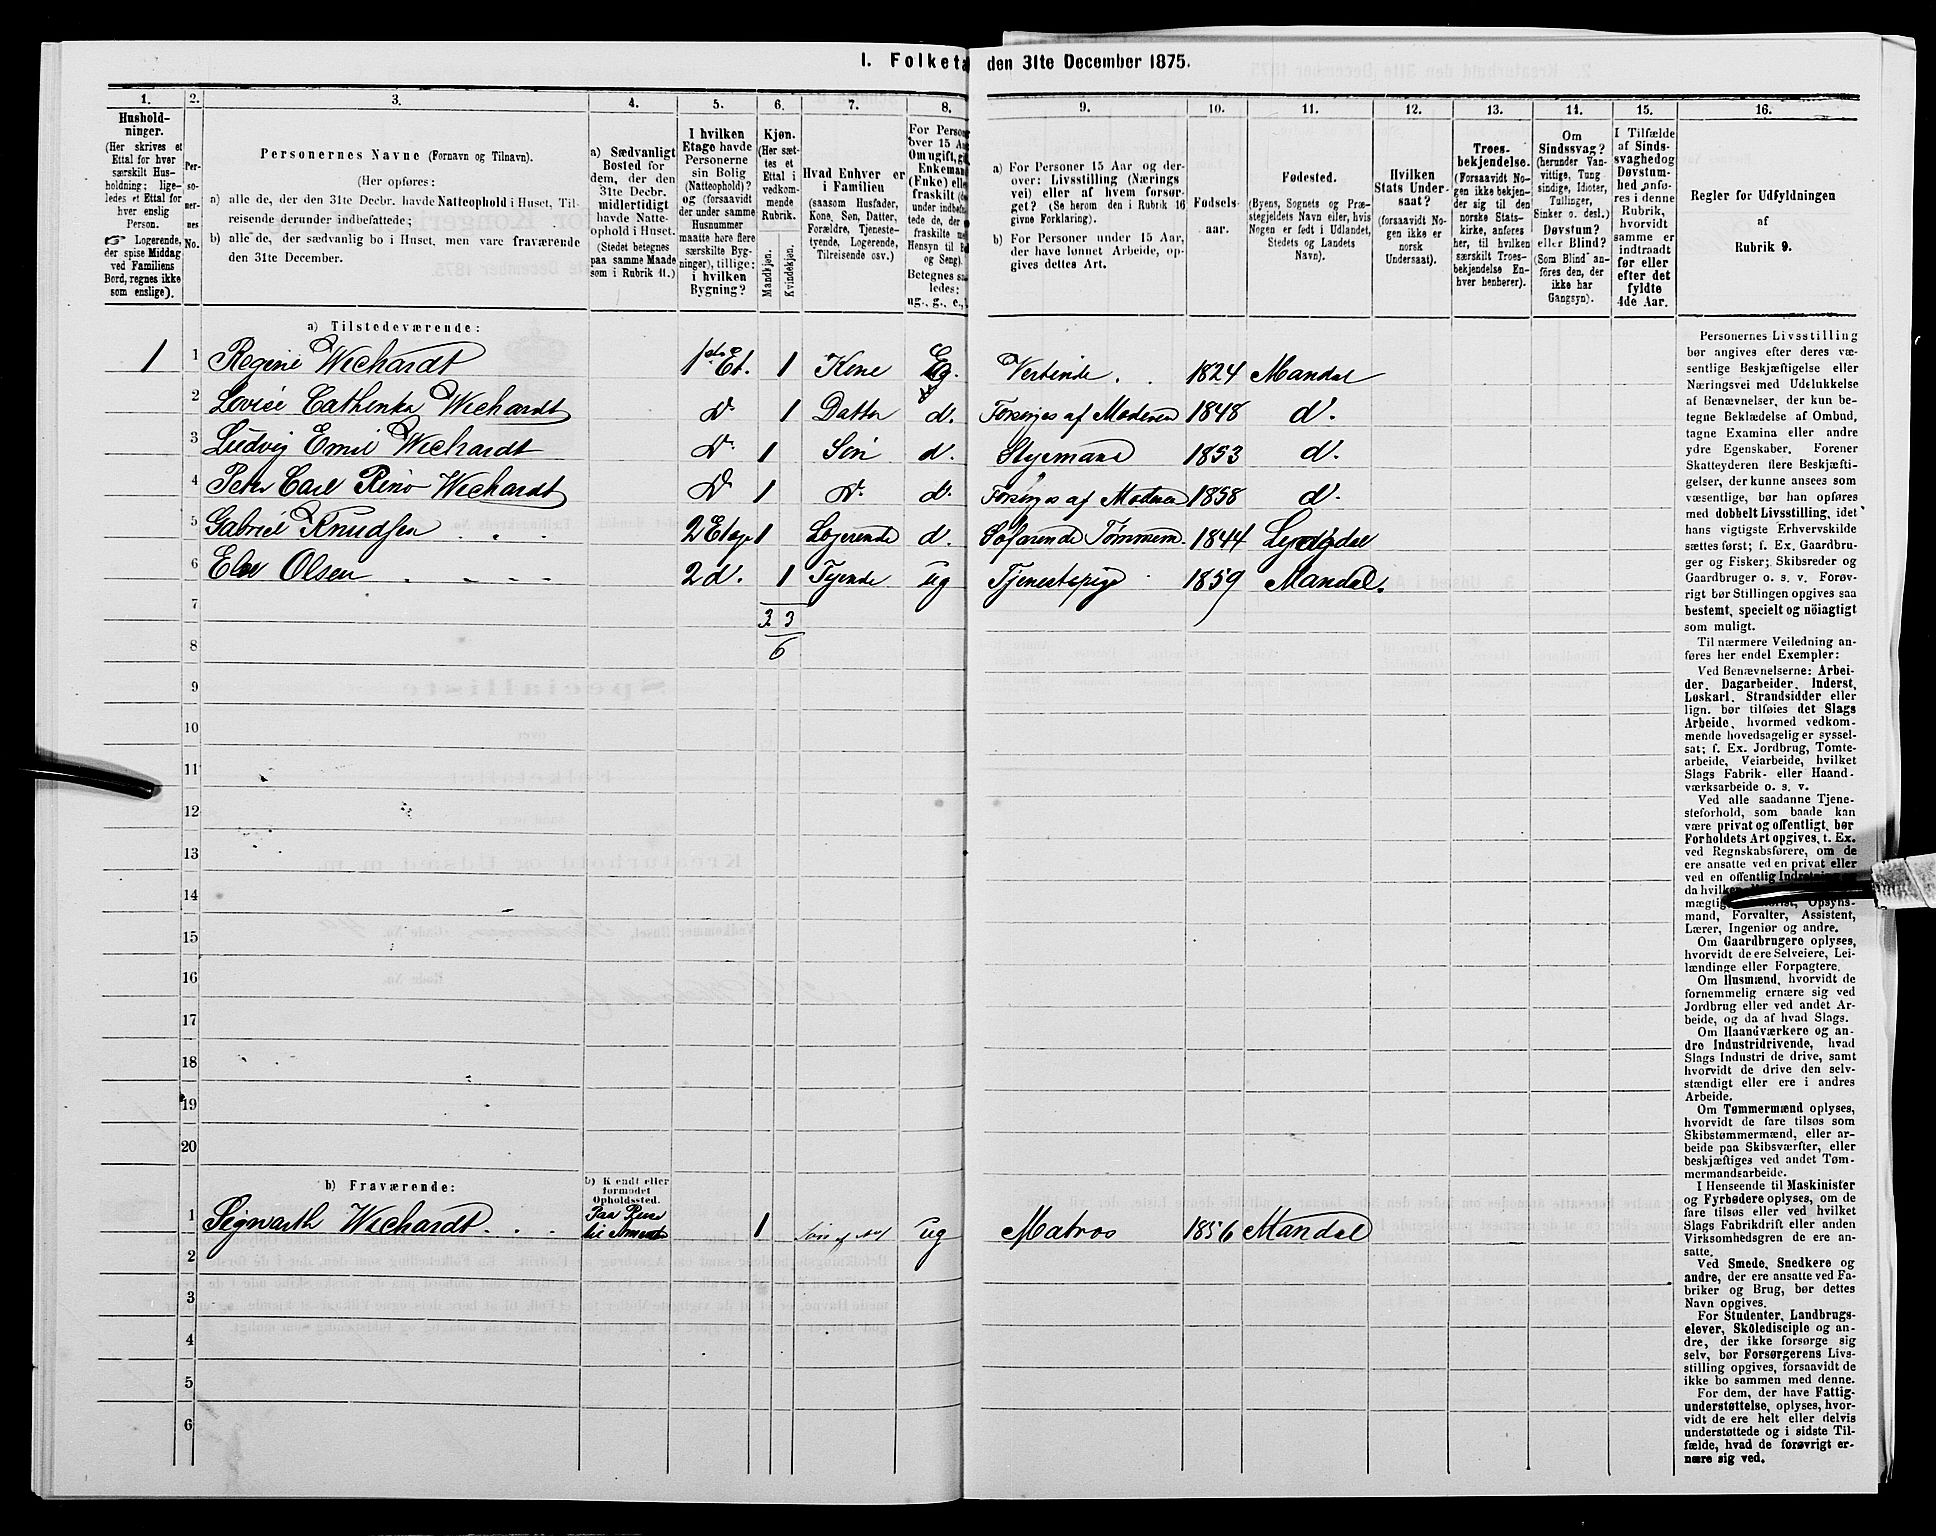 I. Folketa den 31te December 1875.
1. 2. 3. 4. 5. 6. 7. 8. 9. 10. 11. 12. 13. 14. 15. 16.
Hushold-
ninger.
(Her skrives et
Ettal for hver
særskilt Hus-
holdning; lige-
ledes et Ettal for
hver enslig
Person.
☞ Logerende,
der spise Middag
ved Familiens
Bord, regnes ikke
som enslige).
Per-
so-
ner-
nes
No.
Personernes Navne (Fornavn og Tilnavn).
(Her opføres:
a) alle de, der den 31te Decbr. havde Natteophold i Huset, Til-
reisende derunder indbefattede;
b) alle de, der sædvanlig bo i Huset, men vare fraværende
den 31te December.
a) Sædvanligt
Bosted for
dem, der den
31te Decbr.
midlertidigt
havde Natte-
ophold i Huset.
(Stedet betegnes
paa samme Maade
som i Rubrik 11.)
I hvilken
Etage havde
Personerne
sin Bolig
(Natteophold)?
og (forsaavidt
der under samme
Husnummer
maatte høre flere
særskilte Byg-
ninger), tillige:
i hvilken
Bygning?
Kjøn.
(Her sæt-
tes et
Ettal i
vedkom-
mende
Rubrik.
Mandkjøn.
Kvindekjøn.
Hvad Enhver er
i Familien
(saasom Husfader,
Kone, Søn, Datter,
Forældre, Tjeneste-
tyende, Logerende,
Tilreisende osv.)
For Perso
over 15 Aa
Om ugift, gi
Enkeman
(Enke) elle
fraskilt (
under indbefa
tede de, der
fraskilte me
Hensyn til B
og Seng).
Betegnes saa
ledes:
ug., g., e.,
a) For Personer 15 Aar og der-
over: Livsstilling (Nærings
vei) eller af hvem forsør-
get? (Se herom den i Rubrik 16
givne Forklaring).
b) For Personer under 15 Aar,
der have lønnet Arbeide, op-
gives dettes Art.
Fødsels-
aar.
Fødested.
(Byens, Sognets og Præ-
stegjeldets Navn eller, hvis
Nogen er født i Udlandet,
Stedets og Landets
Navn).
Hvilken
Stats Under-
saat?
(forsaavidt No-
gen ikke er
norsk
Undersaat).
Troes-
bekjendelse.
(Forsaavidt No-
gen ikke bekjen-
der sig til den
norske Stats-
kirke, anføres
her, til hvilken
særskilt Troes-
bekjendelse En-
hver henhører).
Om
Sindssvag?
(herunder Van-
vittige, Tung
sindige, Idioter,
Tullinger,
Sinker o. desl.)
Døvstum?
eller Blind?
(Som Blind an-
føres den, der
ikke har
Gangsyn).
I Tilfælde
af Sinds-
svaghed og
Døvstum-
hed anfø-
res i denne
Rubrik,
hvorvidt
samme er
indtraadt
før eller
efter det
fyldte
4de Aar.
Regler for Udfyldningen
af
Rubrik 9.
a) Tilstedeværende:
1 1 Regine Wichardt 1ste Et. 1 Kone Eg. Vertinde 1824 Mandal
2 Lovise Cathenka Wichardt D. 1 Datter d. Forsørges af Moderen 1848 d.
3 Ludvig Emil Wichardt D. 1 Søn d. Styrmand 1853 d.
4 Peter Carl Rino Wichardt D 1 D. d. Forsørges af Moderen 1858 d.
5 Gabriel Knudsen 2 Etage 1 Logerende d. Søfarende Tømmerm. 1844 Lyngdal
6 Olsen 2 d. 1 Tyende ug Tjenestepige 1859 Mandal.
7 3 3
8 6
9
10
11
12
13
14
15
16
17
18
19
20
b) Fraværende:
b) Kjendt eller
formodet
Opholdssted.
Paa Reise
1 Sigwarth Wichardt til 1 Søn af No 1 ug Matros 1856 Mandal
2
3
4
5
6
Personernes Livsstilling
bør angives efter deres væ-
sentlige Beskjæftigelse eller
Næringsvei med Udelukkelse
af Benævnelser, der kun be-
tegne Beklædelse af Ombud,
tagne Examina eller andre
ydre Egenskaber. Forener
Skatteyderen flere Beskjæfti-
gelser, der kunne ansees som
væsentlige, bør han opføres
med dobbelt Livsstilling, idet
hans vigtigste Erhvervskilde
sættes først; f. Ex. Gaardbru-
ger og Fisker; Skibsreder og
Gaardbruger o. s. v. Forøv-
rigt bør Stillingen opgives saa
bestemt, specielt og nöiagtigt
som muligt.
Til nærmere Veiledning an-
føres her endel Exempler:
Ved Benævnelserne: Arbei-
der, Dagarbeider, Inderst,
Løskarl, Strandsidder eller
lign. bør tilføies det Slags
Arbeide, hvormed vedkom-
mende hovedsagelig er syssel-
sat; f. Ex. Jordbrug, Tomte-
arbeide, Veiarbeide, hvilket
Slags Fabrik- eller Haand-
værksarbeide o. s. v.
Ved alle saadanne Tjene-
steforhold, som baade kan
være privat og offentligt, bør
Forholdets Art opgives, t. Ex.
ved Regnskabsførere, om de
ere ansatte ved en privat eller
ved en offentlig
da
Opsyns-
mand, Forvalter, Assistent,
Lærer, Ingeniør og andre.
Om Gaardbrugere oplyses,
hvorvidt de ere Selveiere, Lei-
lændinge eller Forpagtere.
Om Husmænd, hvorvidt de
fornemmelig ernære sig ved
Jordbrug eller ved andet Ar-
beide, og da af hvad Slags.
Om Haandværkere og an-
dre Industridrivende, hvad
Slags Industri de drive, samt
hvorvidt de drive den selv-
stændigt eller ere i andres
Arbeide.
Om Tømmermænd oplyses,
hvorvidt de fare tilsøs som
Skibstømmermænd, eller ar-
beide paa Skibsværfter, eller
beskjæftiges ved andet Tøm-
mermandsarbeide.
I Henseende til Maskinister
og Fyrbødere oplyses, om de
fare tilsøs eller ved hvilket
Slags Fabrikdrift eller anden
Virksomhedsgren de ere an-
satte.
Ved Smede, Snedkere og
andre, der ere ansatte ved Fa-
briker og Brug, bør dettes
Navn opgives.
For Studenter, Landbrugs-
elever, Skoledisciple og an-
dre, der ikke forsørge sig
selv, bør Forsørgerens Livs-
stilling opgives, forsaavidt de
ikke bo sammen med denne.
For dem, der have Fattig-
understøttelse, oplyses, hvor-
vidt de ere helt eller delvis
understøttede og i sidste Til-
fælde, hvad de forøvrigt er-
nære sig ved.